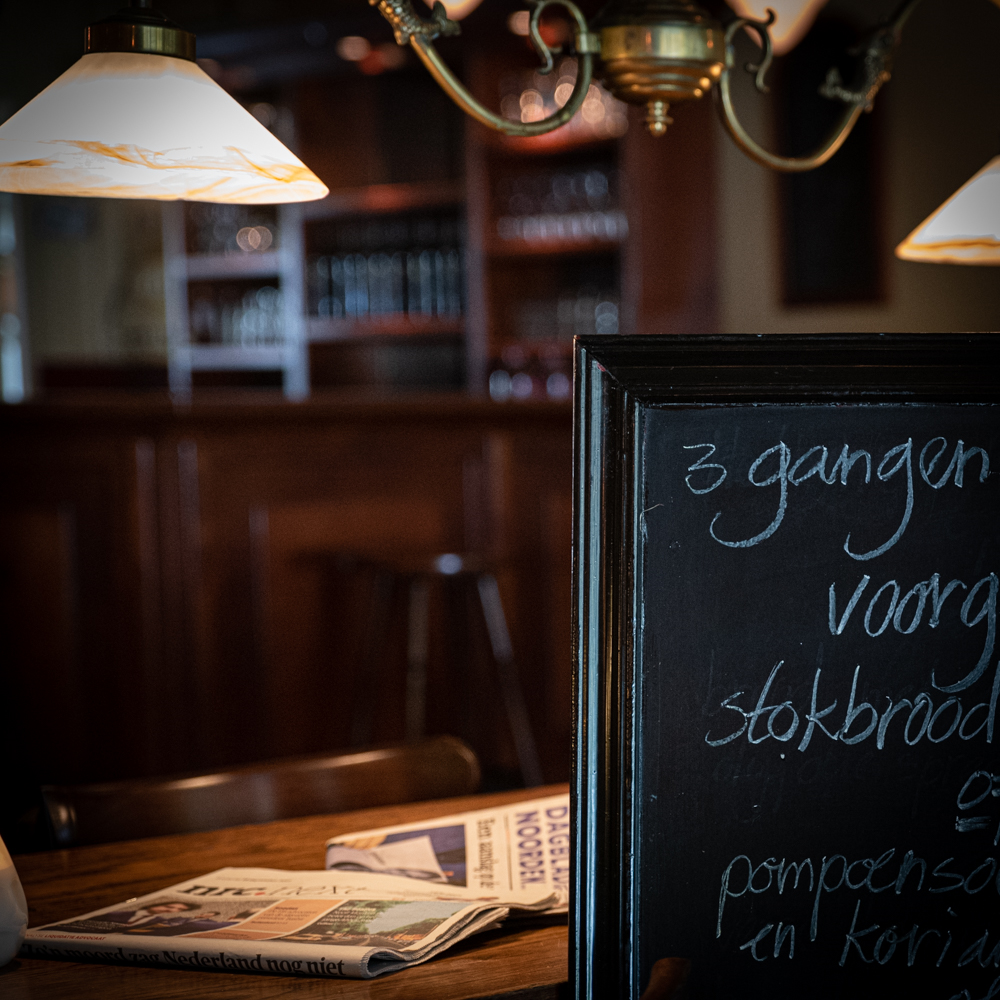 3 gangen
voorg
stokbrood
pompoensо
en koria
DAGBLA
NOORDEN.
nrc.next
moordzag Nederland nog niet